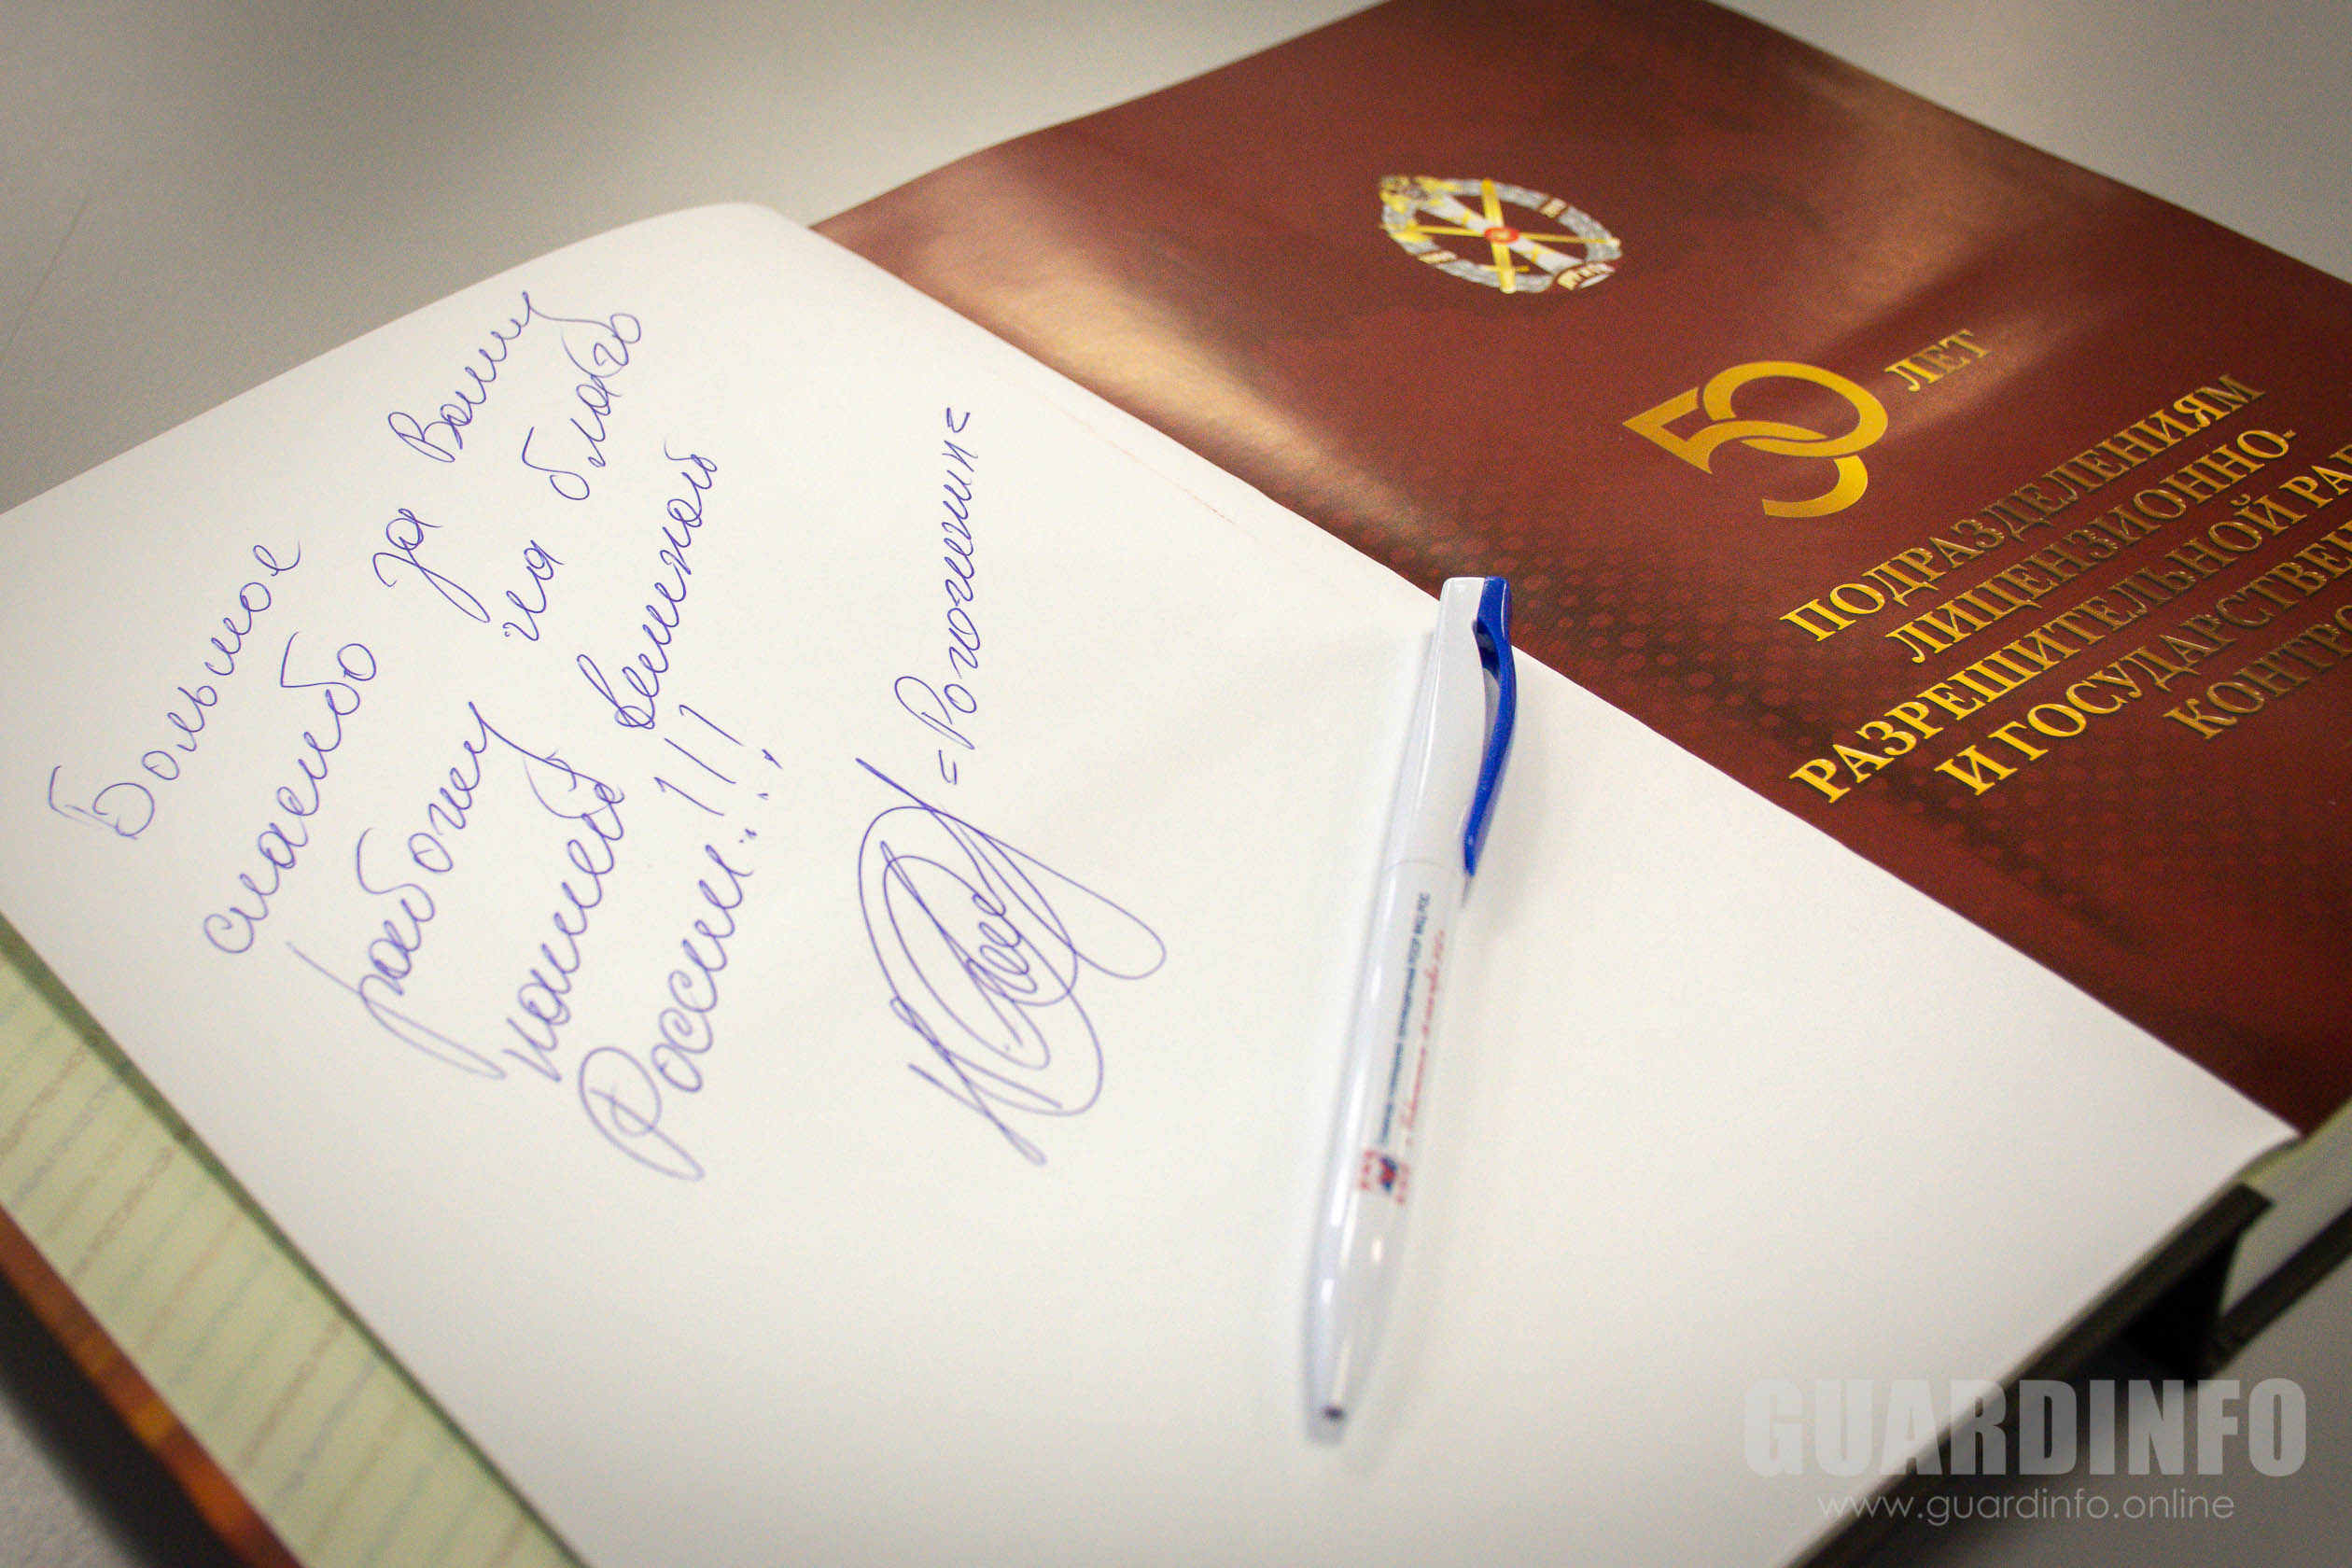 Большое
спасибо за Вашу
работу на благо
нашей великой
России!!!
=Рогошин=
50 ЛЕТ
ПОДРАЗДЕЛЕНИЯМ
ЛИЦЕНЗИОННО-
РАЗРЕШИТЕЛЬНОЙ РА
И ГОСУДАРСТВЕН
КОНТРО
GUARDINFO
www.guardinfo.online